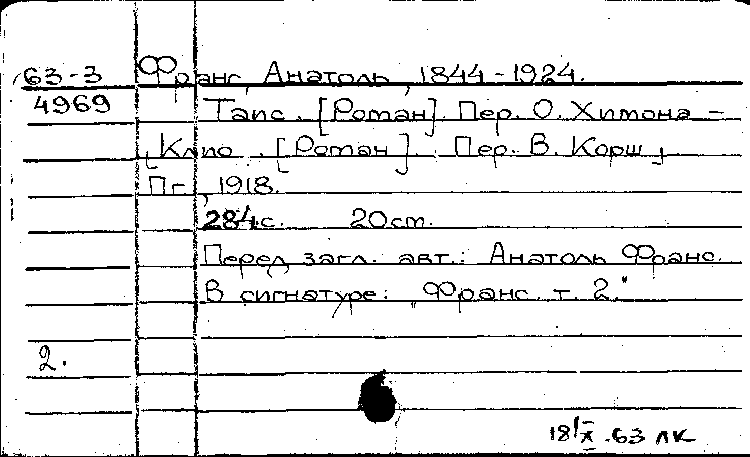 63-3 Франс, Анатоль, 1844-1924.
4969 Таис. [Роман]. Пер. О. Химона -
Клио. [Роман]. Пер. В. Корш
Пг., 1918.
284с. 20 cm.
Перед загл. авт.: Анатоль Франс.
В сигнатуре: "Франс. т. 2."
2.
18/X.63 ЛК